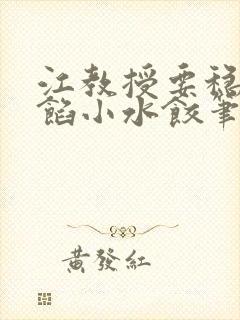 江教授要穩
餡小水餃筆
黃發紅